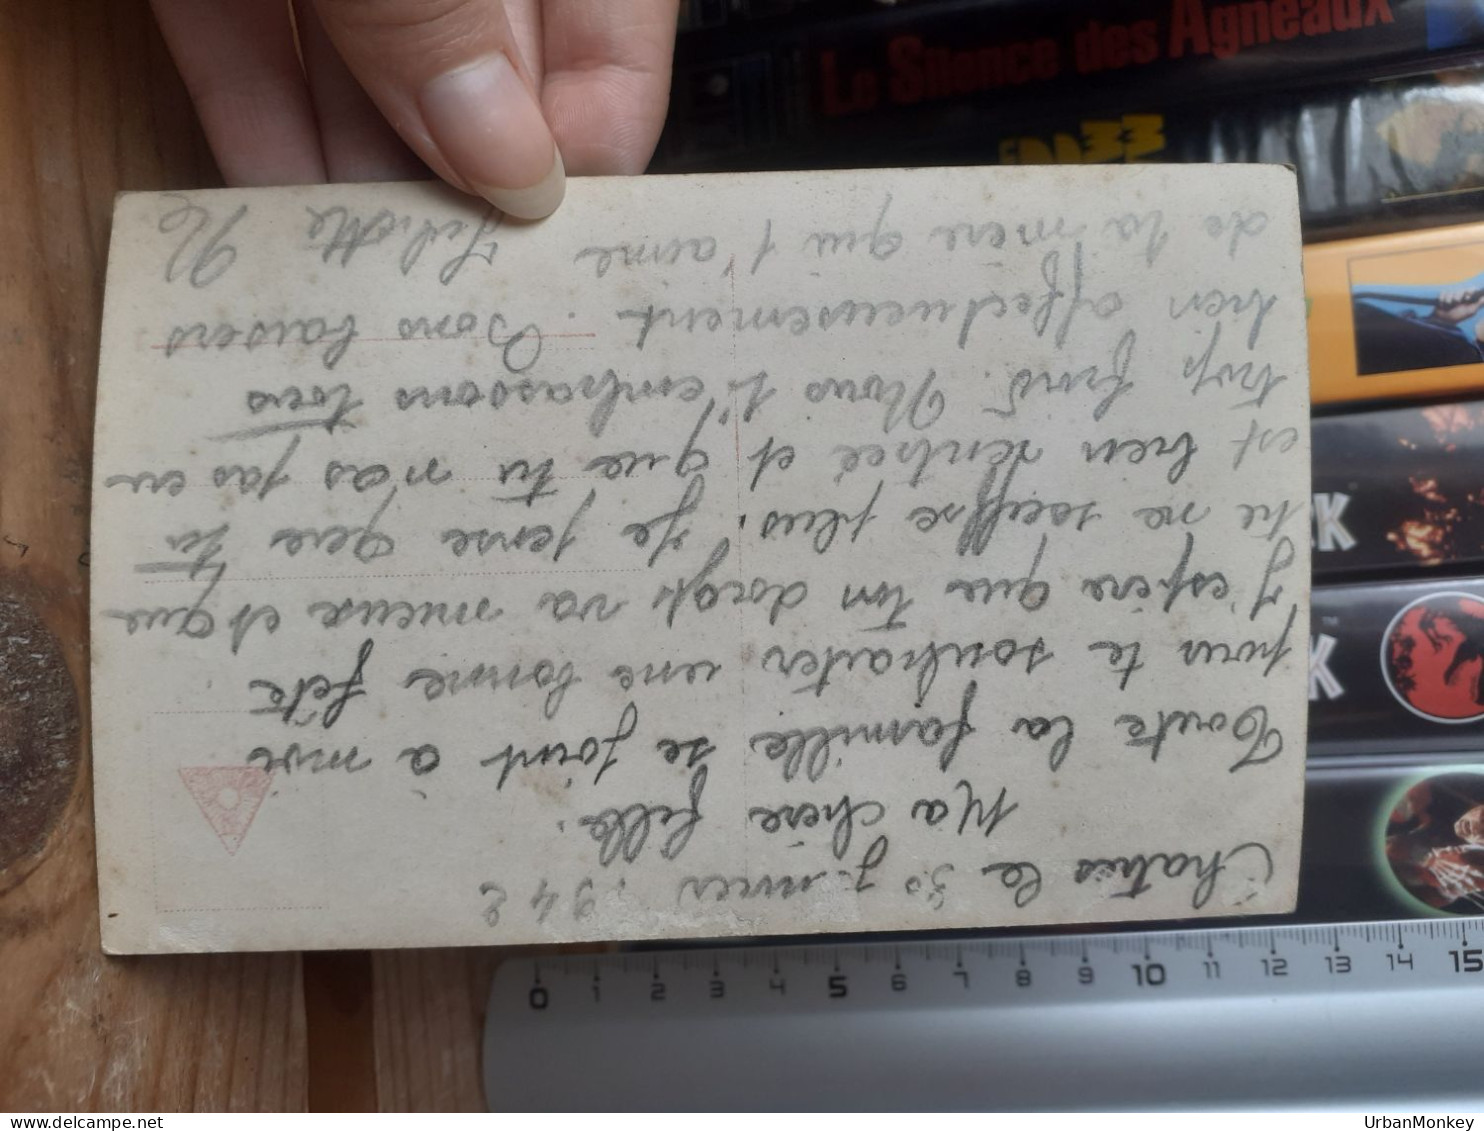 le 30 janvier 1942
Ma chère fille.
Toute la famille se joint à moi
pour te souhaiter une bonne fête
J'espère que ton doigt va mieux et que
tu ne souffre plus. Je pense que tu
est bien rentrée et que tu n'as pas eu
trop froid. Nous t'embrassons tous
bien affectueusement. Bons baisers
de ta mère qui t'aime
Le Silence des Agneaux
0 1 2 3 4 5 6 7 8 9 10 11 12 13 14 15
delcampe.net
UrbanMonkey